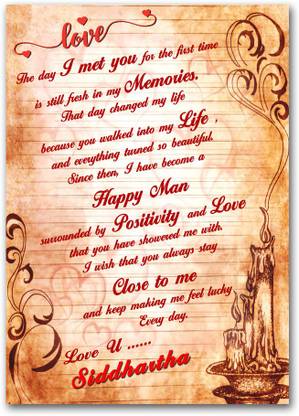 love
The day I met you for the first time
is still fresh in my Memories.
That day changed my life
because you walked into my Life ,
and everything turned so beautiful.
Since then, I have become a
Happy Man
surrounded by Positivity and Love
that you have showered me with.
I wish that you always stay
Close to me
and keep making me feel lucky
Every day.
Love U ......
Siddhartha